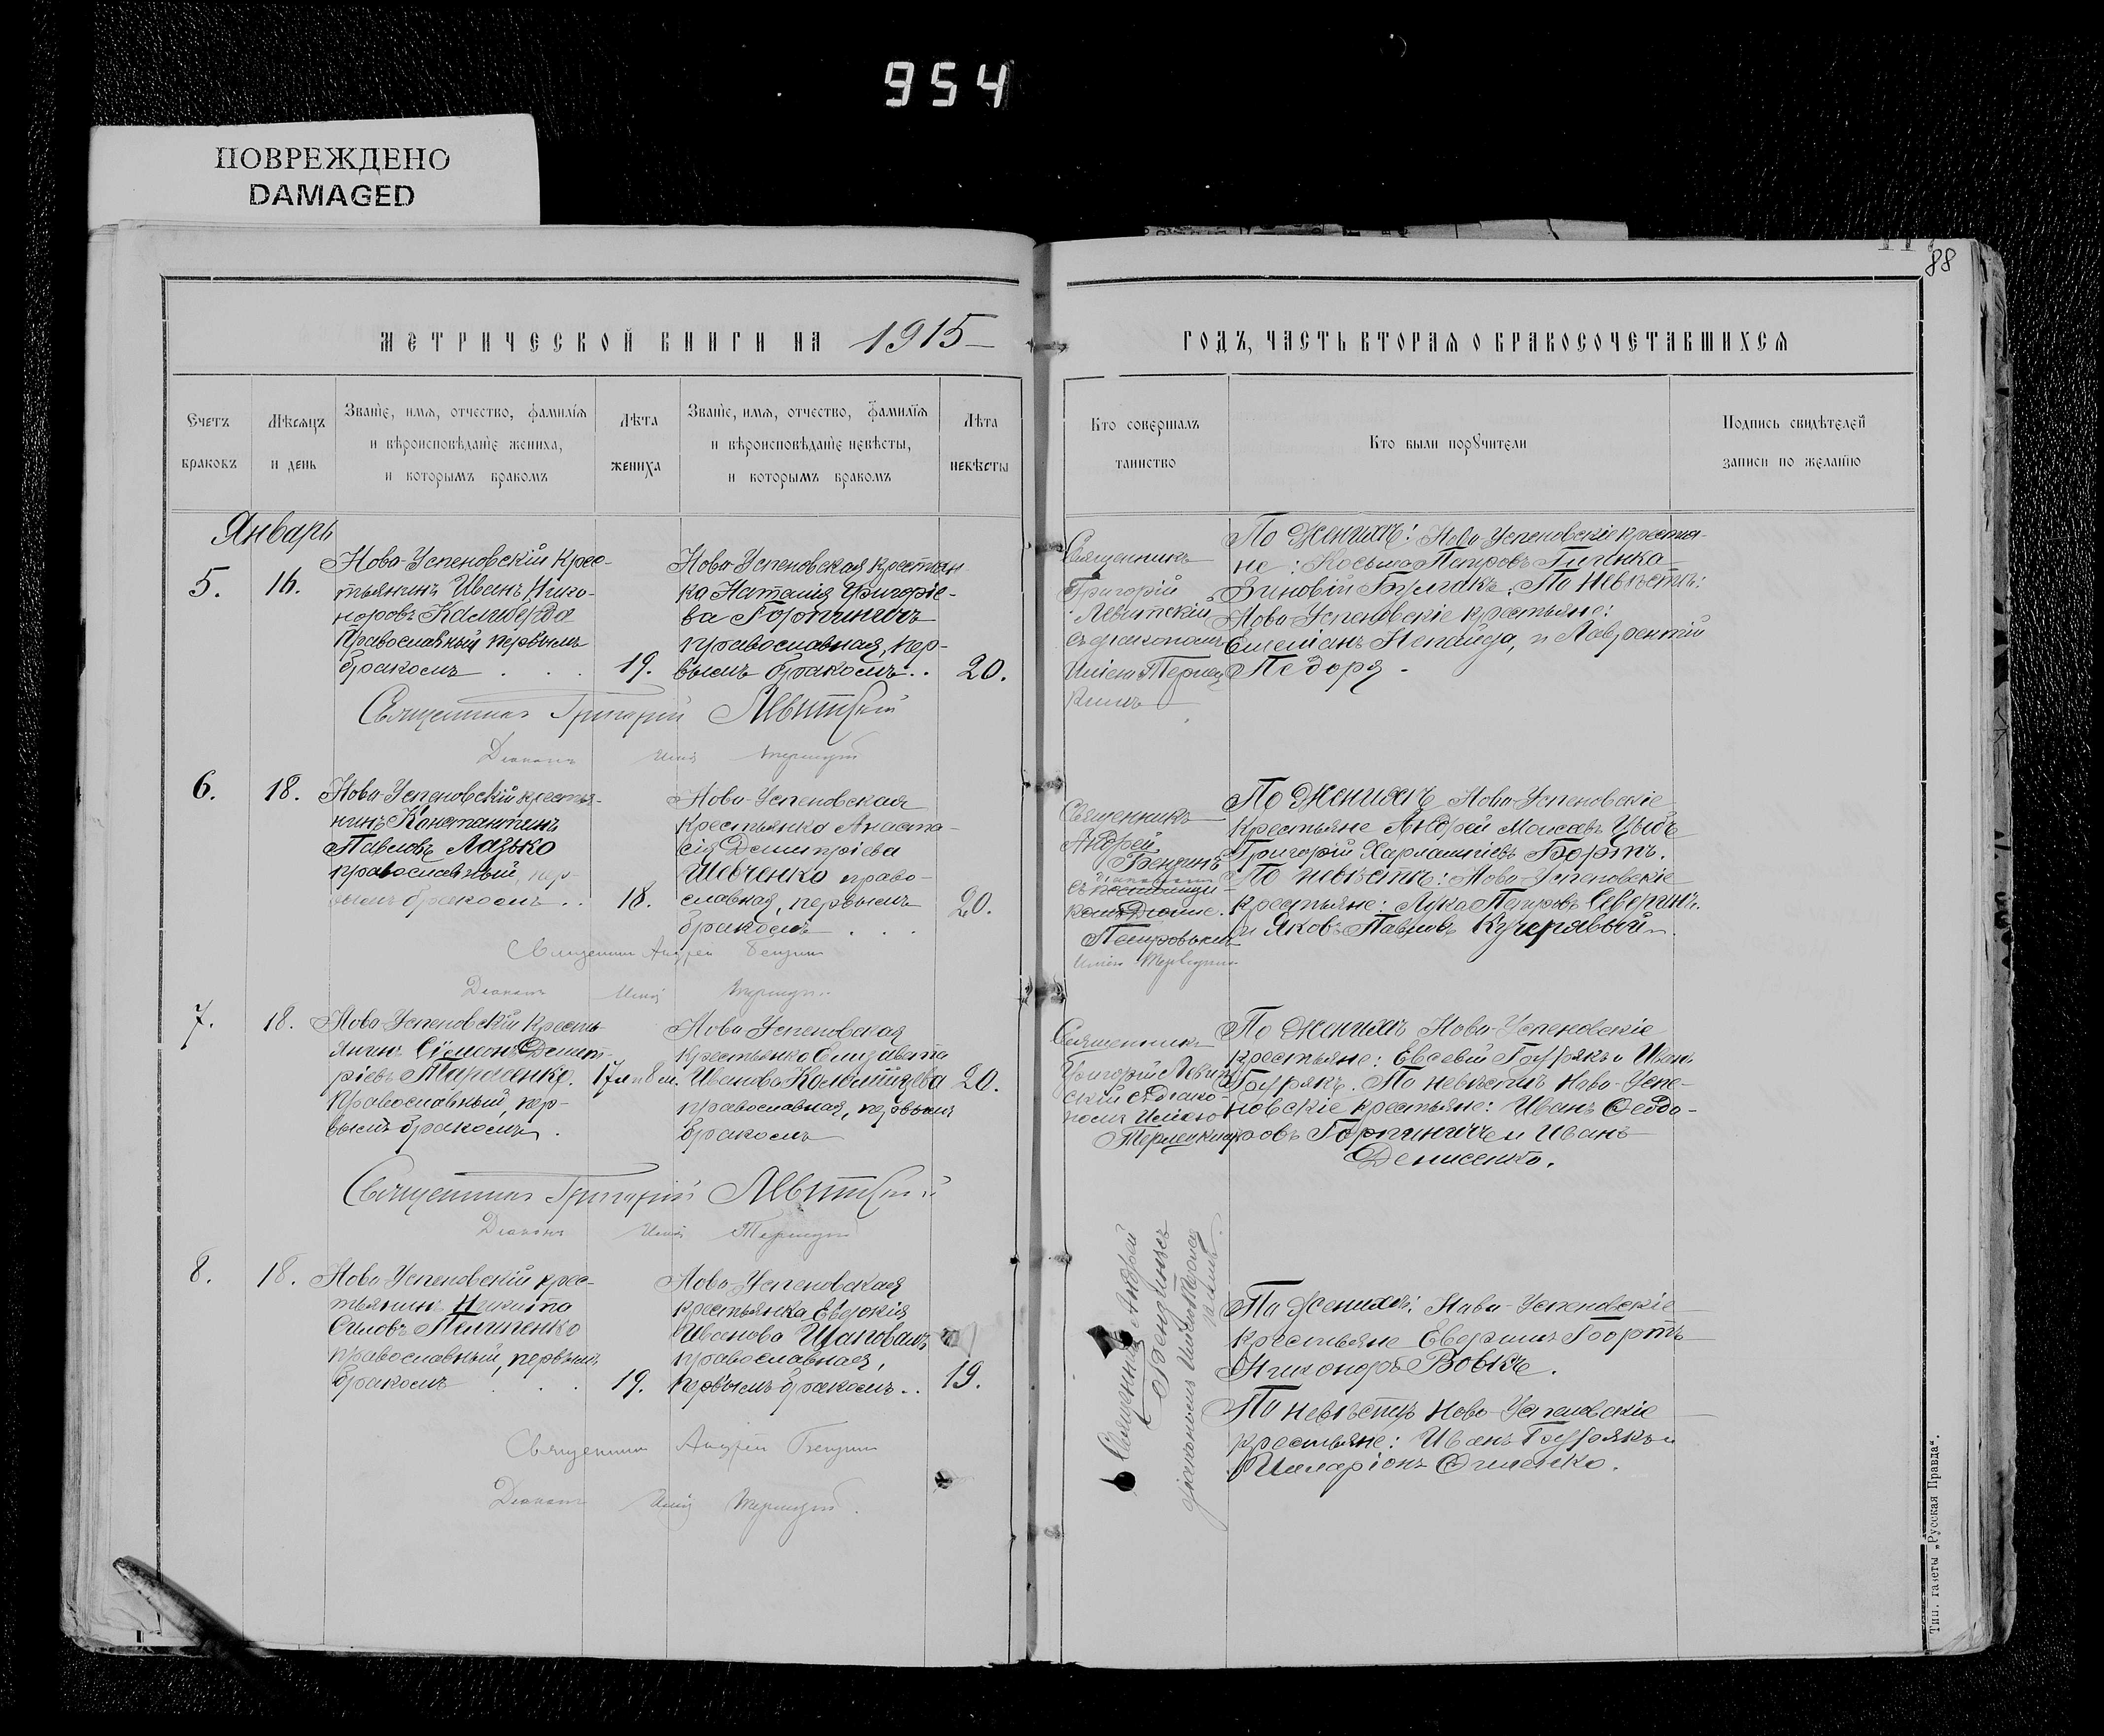 954
ПОВРЕЖДЕНО
DAMAGED
88
МЕТРИЧЕСКОЙ КНИГИ НА 1915
ГОДЪ, ЧАСТЬ ВТОРАЯ О БРАКОСОЧЕТАВШИХСЯ
Счетъ браковъ
Мѣсяцъ и день
Званіе, имя, отчество, фамилія
и вѣроисповѣданіе жениха,
и которымъ бракомъ
Лѣта жениха
Званіе, имя, отчество, фамилія
и вѣроисповѣданіе невѣсты,
и которымъ бракомъ
Лѣта невѣсты
Кто совершалъ таинство
Кто были поручители
Подпись свидѣтелей
записи по желанію
Январь
5.
16.
Ново-Успеновскій крес-
тьянинъ Иванъ Ника-
норовъ Калиберда
Православный первымъ
бракомъ . . .
19.
Ново-Успеновская крестьян
ка Наталія Григоріе-
ва Горпиничъ
православная, пер-
вымъ бракомъ . .
20.
Священникъ
Григорій
Левитскій
съ діакономъ
По Женихѣ: Ново Успеновскіе крестья-
не: Косьма Петровъ
Зиновій По Невѣстѣ:
Ново-Успеновскіе крестьяне:
Емеліанъ Непайда, и Лаврентій
Педоря -
Священникъ Григорій Левитскій
Діаконъ
6.
18.
Ново-Успеновскій крестья-
нинъ Константинъ
Павловъ Лазько
православный, пер-
вымъ бракомъ . .
18.
Ново-Успеновская
крестьянка Анаста-
сія Димитріева
Шевченко право-
славная, первымъ
бракомъ . . .
20.
Священникъ
Андрей
Бензинъ
Петровымъ
По Женихѣ Ново-Успеновскіе
крестьяне Андрей Моисеевъ Цыбъ
Григорій Харлампіевъ Бортъ.
По невѣстѣ: Ново-Успеновскіе
крестьяне: Лука Петровъ Северинъ.
и Яковъ Павловъ Кучерявый.
Священникъ Андрей Бензинъ
Діаконъ
7.
18.
Ново Успеновскій кресть-
янинъ Сімеонъ Димит-
ріевъ Тараненко.
Православный, пер-
вымъ бракомъ.
17 л и 8 м.
Ново Успеновская
крестьянка Елизавета
Иванова Коломійцева
православная, первымъ
бракомъ
20.
Священникъ
Григорій Левит
скій съ діако-
номъ
По Женихѣ Ново-Успеновскіе
крестьяне: Евсевій Гоурякъ и Иванъ
Гоурякъ. По невѣстѣ Ново-Успе-
новскіе крестьяне: Иванъ Ѳеодо-
ровъ Горпиничъ и Иванъ
Денисенко.
Священникъ Григорій Левитскій
Діаконъ
8.
18.
Ново Успеновскій крес-
тьянинъ Никита
Силовъ Пилипенко
православный, первымъ
бракомъ . . .
19.
Ново-Успеновская
крестьянка Евдокія
Иванова Шаповалъ
православная,
первымъ бракомъ . .
19.
Священникъ Андрей
Бензинъ съ
діакономъ
По Женихѣ: Ново-Успеновскіе
крестьяне Евдокимъ Бортъ
Никаноръ Вовкъ.
По невѣстѣ Ново-Успеновскіе
крестьяне: Иванъ Гоурякъ и
Илларіонъ
Священникъ Андрей Бензинъ
Діаконъ
Тип. газеты „Русская Правда“.